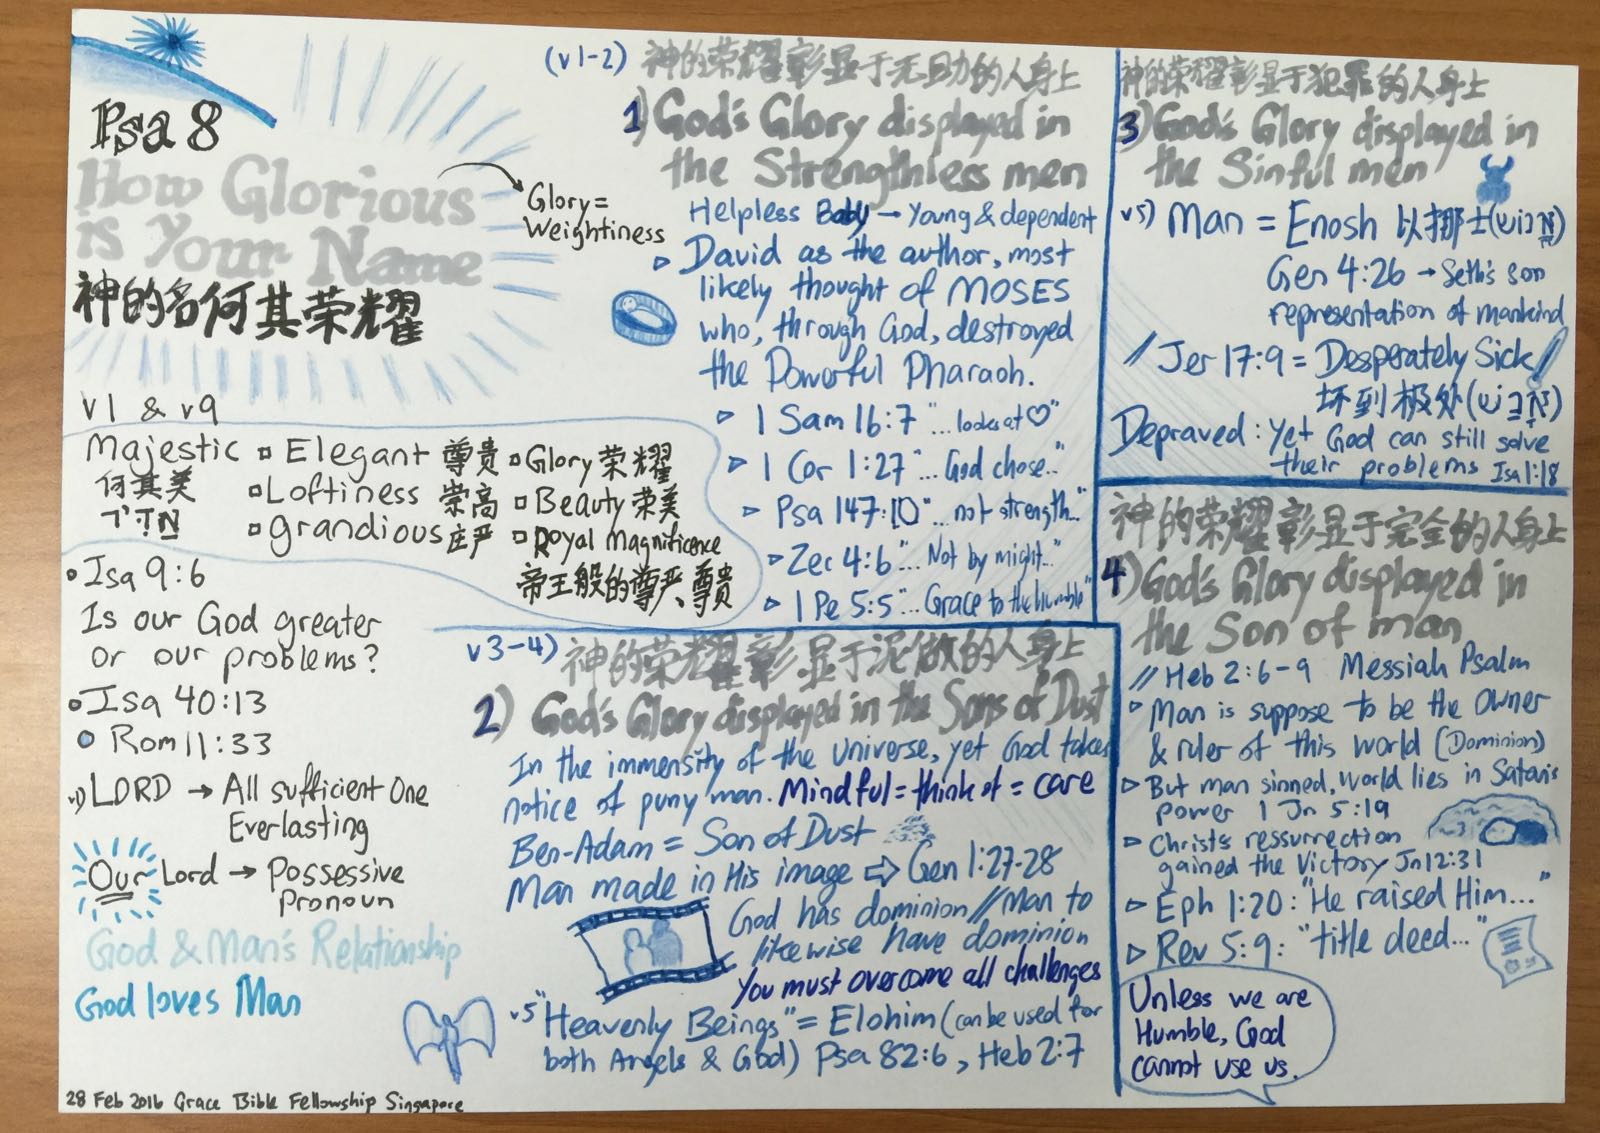 Psa 8
How Glorious
is Your Name
神的名何其荣耀
Glory =
Weightiness
v1 & v9
Majestic
何其美
▫ Elegant 尊贵
▫ Loftiness 崇高
▫ grandious 庄严
▫ Glory 荣耀
▫ Beauty 荣美
▫ Royal Magnificence
帝王般的尊严、尊贵
• Isa 9:6
Is our God greater
or our problems?
• Isa 40:13
• Rom 11:33
v1) LORD → All sufficient One
Everlasting
Our Lord → Possessive
Pronoun
God & Man's Relationship
God loves Man
28 Feb 2016 Grace Bible Fellowship Singapore
(v1-2) 神的荣耀彰显于无助的人身上
1) God's Glory displayed in
the Strengthless men
Helpless Baby → Young & dependent
▹ David as the author, most
likely thought of MOSES
who, through God, destroyed
the Powerful Pharaoh.
▹ 1 Sam 16:7 "...looks at ♡"
▹ 1 Cor 1:27 "...God chose.."
▹ Psa 147:10 "...not strength.."
▹ Zec 4:6 "... Not by might..."
▹ 1 Pe 5:5 "...Grace to the humble"
v3-4) 神的荣耀彰显于泥做的人身上
2) God's Glory displayed in the Sons of Dust
In the immensity of the universe, yet God takes
notice of puny man. Mindful = think of = care
Ben-Adam = Son of Dust
Man made in His image ⇨ Gen 1:27-28
God has dominion // Man to
likewise have dominion
You must overcome all challenges
v5 "Heavenly Beings" = Elohim (can be used for
both Angels & God) Psa 82:6, Heb 2:7
神的荣耀彰显于犯罪的人身上
3) God's Glory displayed in
the Sinful men
v5) Man = Enosh 以挪士
Gen 4:26 → Seth's son
representation of mankind
// Jer 17:9 = Desperately Sick
坏到极处
Depraved: Yet God can still solve
their problems Isa 1:18
神的荣耀彰显于完全的人身上
4) God's Glory displayed in
the Son of man
// Heb 2:6-9 Messiah Psalm
▹ Man is suppose to be the owner
& ruler of this world (Dominion)
▹ But man sinned, world lies in Satan's
power 1 Jn 5:19
▹ Christ's ressurrection
gained the Victory Jn 12:31
▹ Eph 1:20: "He raised Him..."
▹ Rev 5:9: "title deed..."
Unless we are
Humble, God
cannot use us.